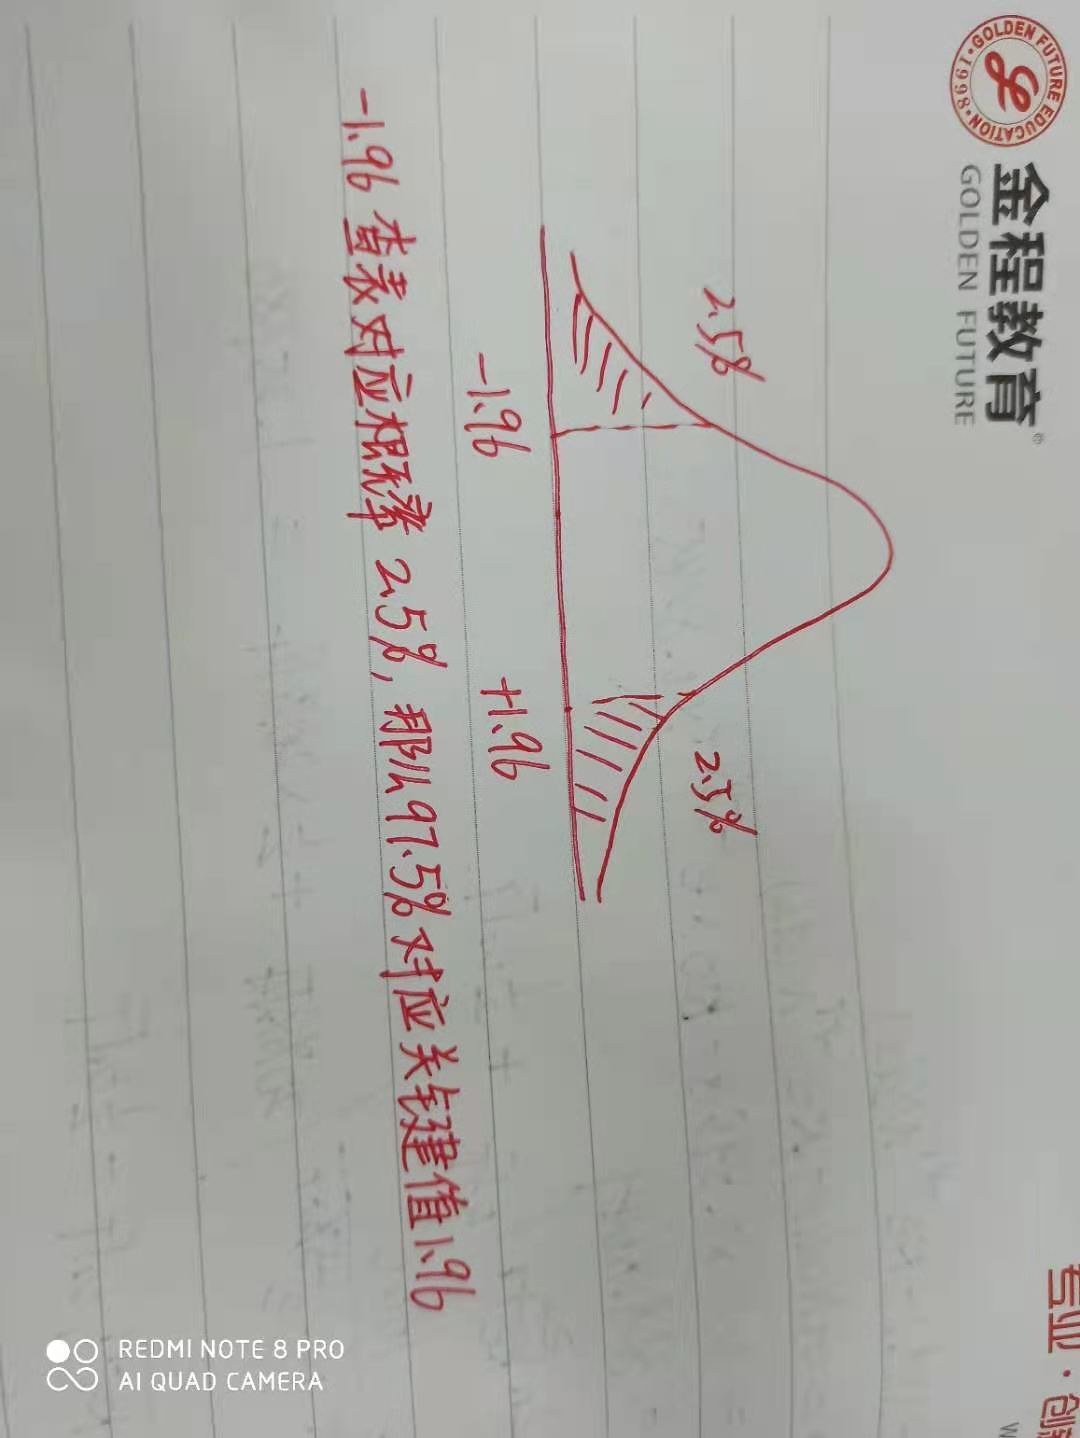 GOLDEN FUTURE EDUCATION · 1998
金程教育®
GOLDEN FUTURE
专业 · 创
2.5%
2.5%
-1.96
+1.96
-1.96 查表对应概率 2.5%, 那么97.5%对应关键值1.96
REDMI NOTE 8 PRO
AI QUAD CAMERA